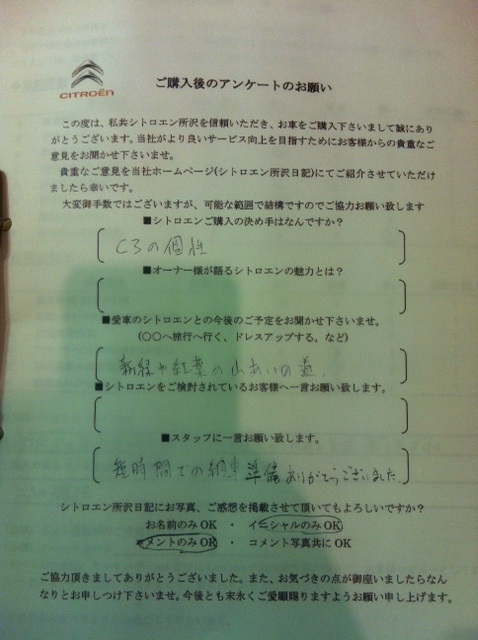 CITROËN
ご購入後のアンケートのお願い
この度は、私共シトロエン所沢を信頼いただき、お車をご購入下さいまして誠にあり
がとうございます。当社がより良いサービス向上を目指すためにお客様からの貴重なご
意見をお聞かせ下さいませ。
貴重なご意見を当社ホームページ(シトロエン所沢日記)にてご紹介させていただけ
ましたら幸いです。
大変御手数ではございますが、可能な範囲で結構ですのでご協力お願い致します
■シトロエンご購入の決め手はなんですか?
C3の個性
■オーナー様が語るシトロエンの魅力とは?
■愛車のシトロエンとの今後のご予定をお聞かせ下さいませ。
(○○へ旅行へ行く、ドレスアップする。など)
新緑や紅葉の山あいの道.
■シトロエンをご検討されているお客様へ一言お願い致します。
■スタッフに一言お願い致します。
短時間での納車準備ありがとうございました
シトロエン所沢日記にお写真、ご感想を掲載させて頂いてもよろしいですか?
お名前のみOK ・ イニシャルのみOK
コメントのみOK ・ コメント写真共にOK
ご協力頂きましてありがとうございました。また、お気づきの点が御座いましたらなん
なりとお申しつけ下さいませ。今後とも末永くご愛顧賜りますようお願い申し上げます。